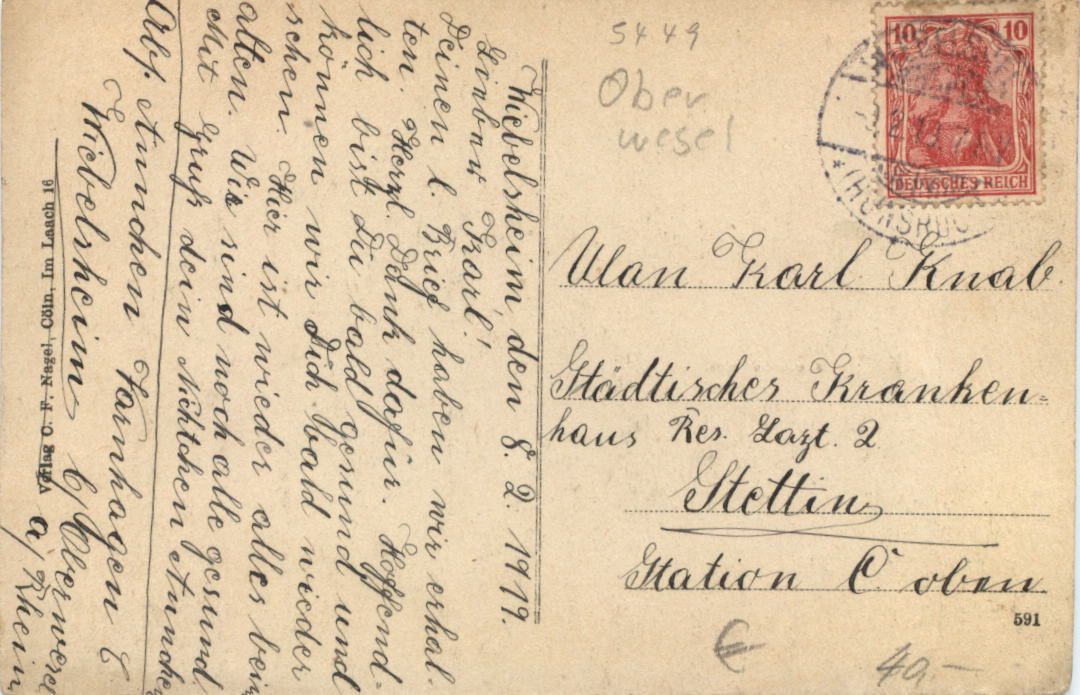 Wiebelsheim, den 8. 2. 1919.
Lieber Karl!
Deinen l. Brief haben wir erhal-
ten. Herzl. Dank dafür. Hoffend-
lich bist du bald gesund und
können wir Dich bald wieder
sehen. Hier ist wieder alles beim
alten. Wir sind noch alle gesund.
Mit Gruß dein Nichtchen Annchen
Abs. Annchen Varnhagen
Wiebelsheim b/ Oberwesel
a/ Rhein
Verlag C. F. Nagel, Cöln, Im Laach 16
5449
Ober
wesel
10 10
DEUTSCHES REICH
(HUNSRÜCK
Ulan Karl Knab.
Städtisches Kranken-
haus Res. Lazt. 2
Stettin
Station C oben.
591
€ 40,-